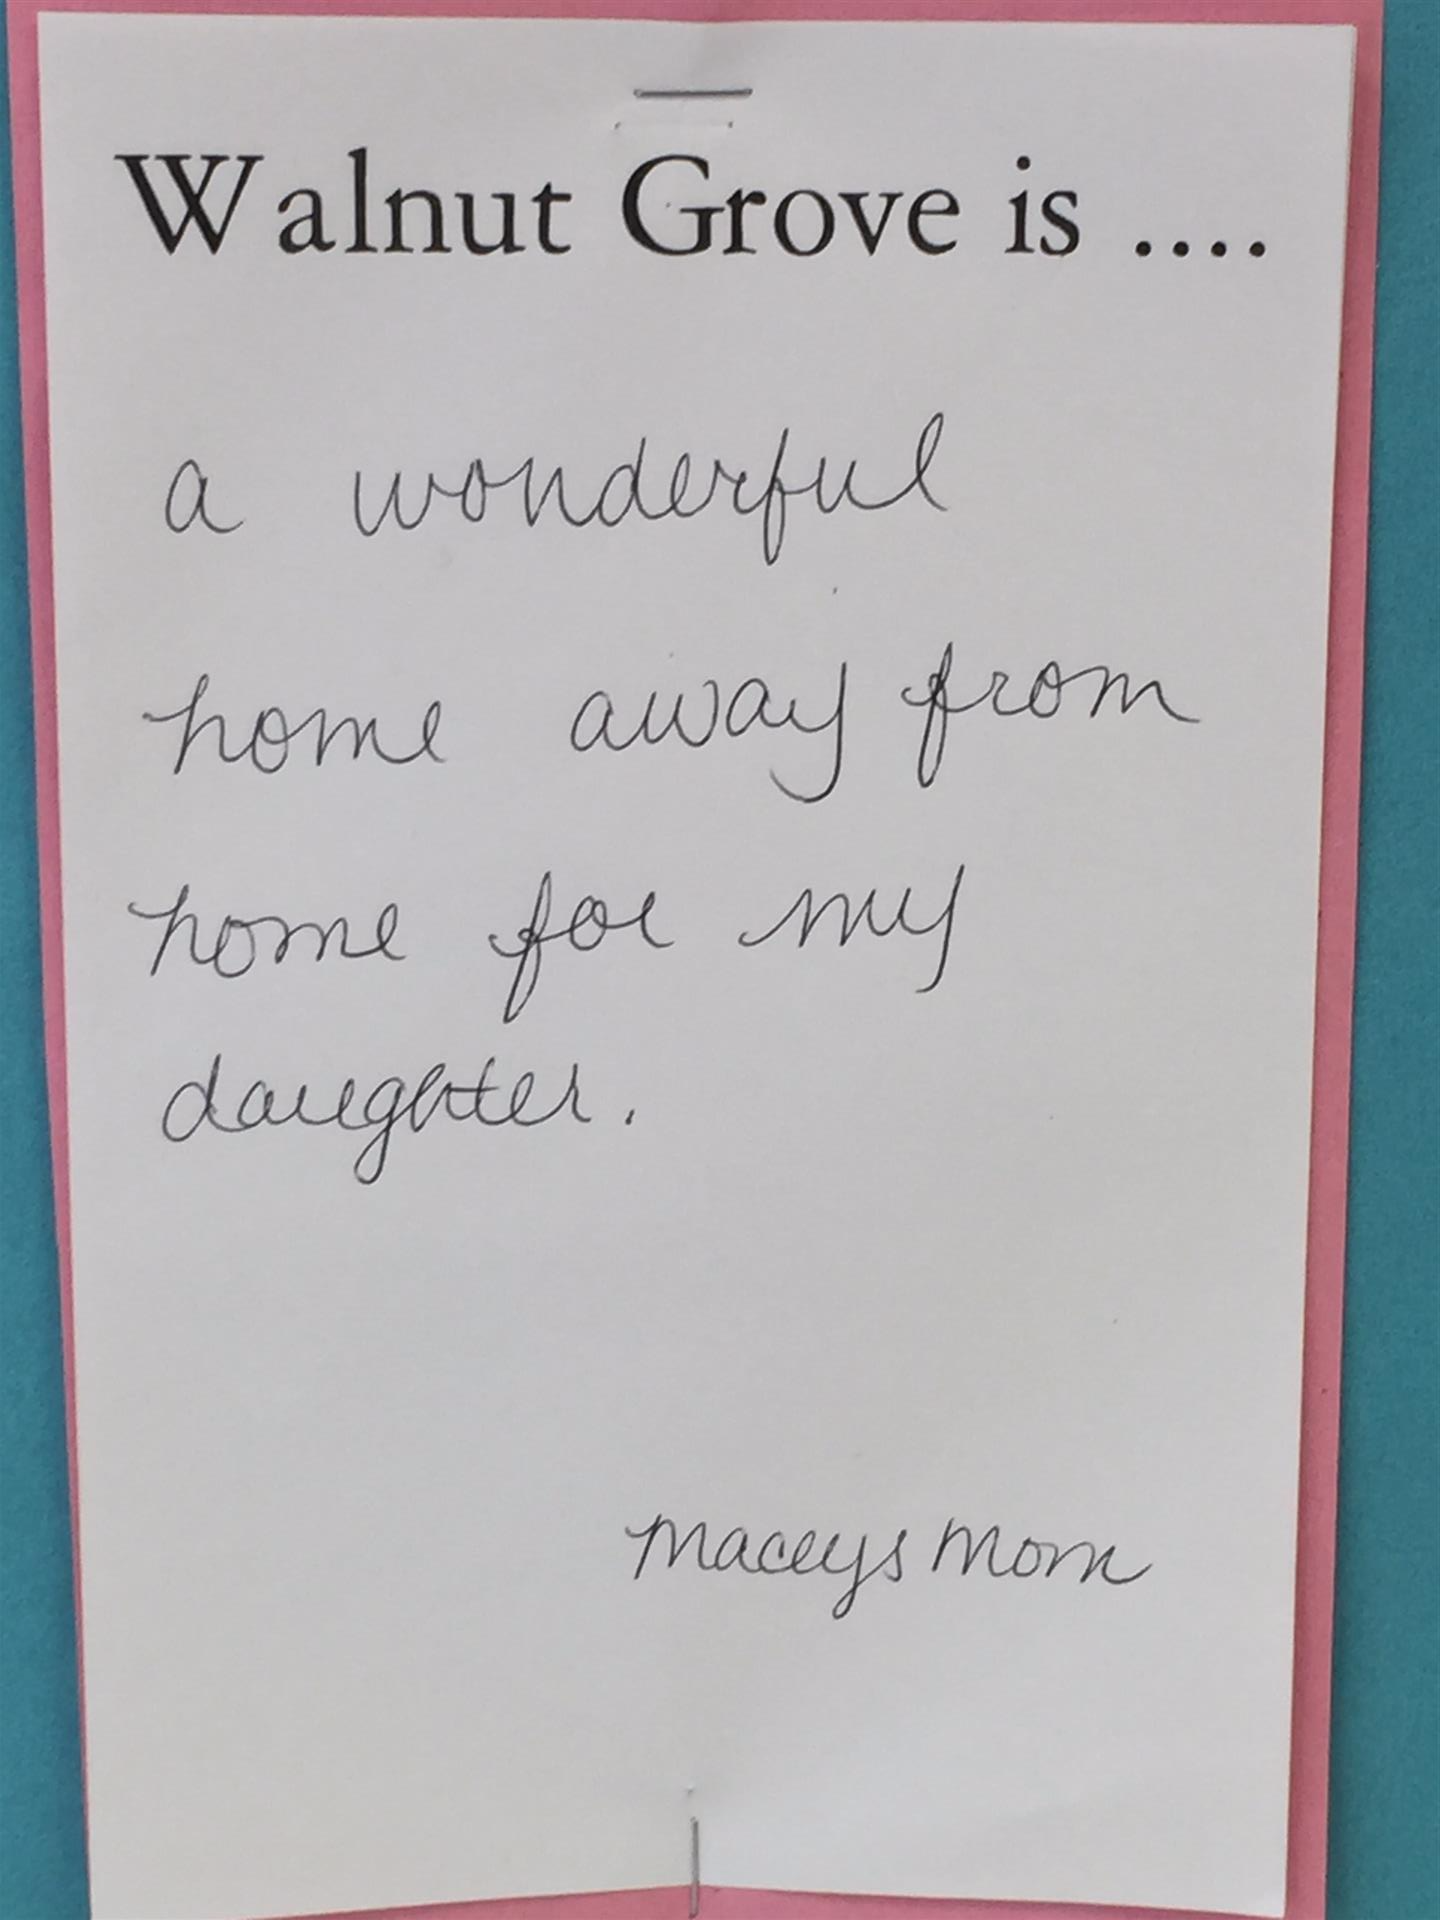 Walnut Grove is ....
a wonderful
home away from
home for my
daughter.
Maceys Mom